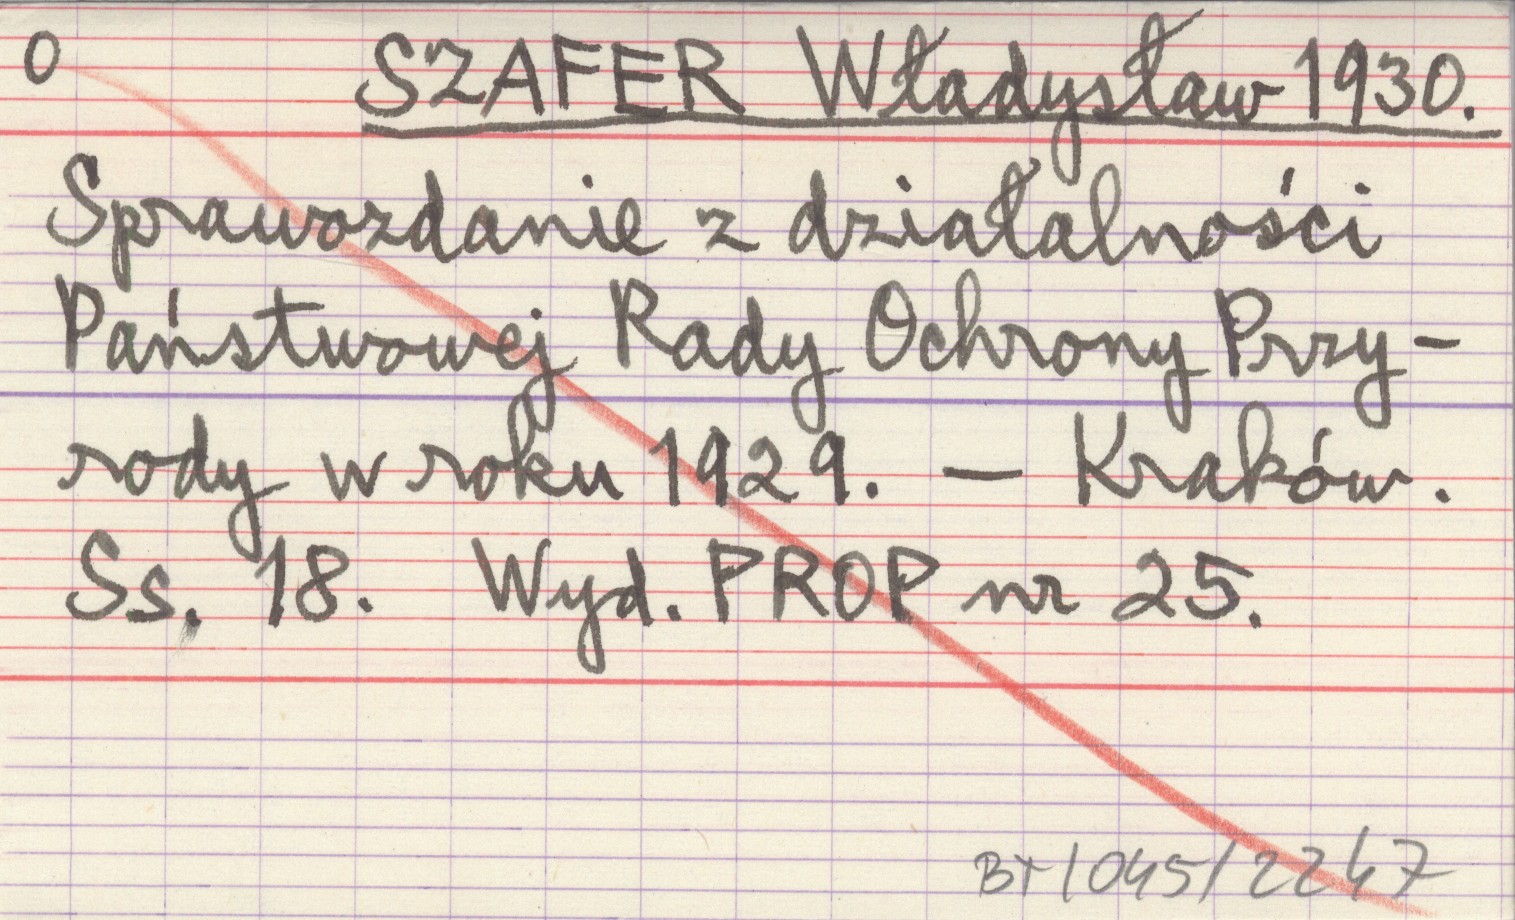 O SZAFER Władysław 1930.
Sprawozdanie z działalności
Państwowej Rady Ochrony Przy-
rody w roku 1929. — Kraków.
Ss. 18. Wyd. PROP nr 25.
BT/045/2247